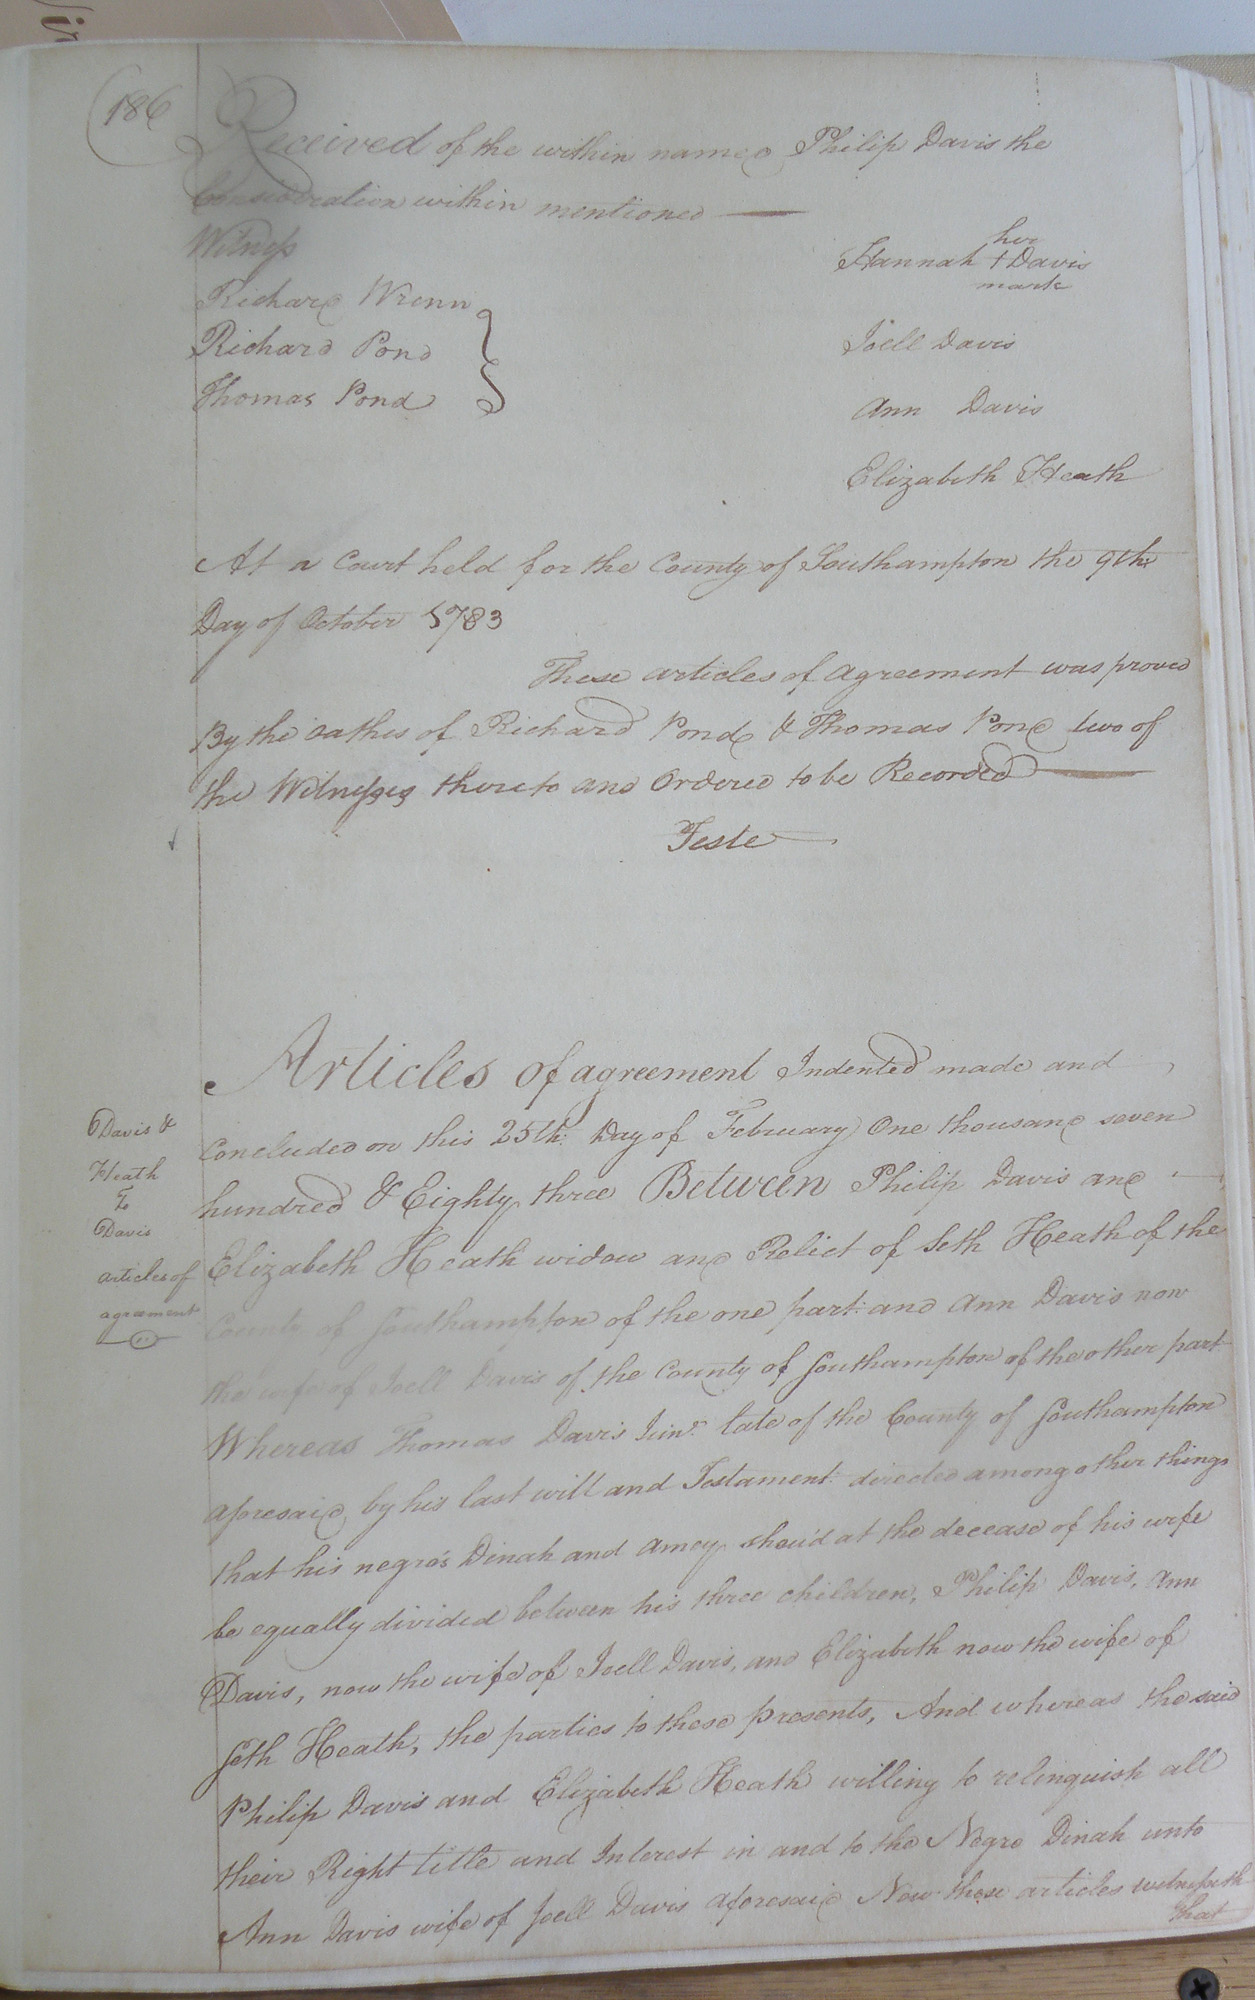 186
Received of the within named Philip Davis the
Consideration within mentioned
Witness
Richard Wrenn
Richard Pond
Thomas Pond
her
Hannah + Davis
mark
Joell Davis
Ann Davis
Elizabeth Heath
At a Court held for the County of Southampton the 9th
Day of October 1783
These articles of agreement was proved
By the oathes of Richard Pond & Thomas Pond two of
the Witnesses thereto and Ordered to be Recorded
Teste
Davis &
Heath
To
Davis
articles of
agreament
Articles of agreement Indented made and
Concluded on this 25th: Day of February One thousand seven
hundred & Eighty three Between Philip Davis and
Elizabeth Heath widow and Relict of Seth Heath of the
County of Southampton of the one part and Ann Davis now
the wife of Joell Davis of the County of Southampton of the other part
Whereas Thomas Davis Junr. late of the County of Southampton
aforesaid by his last will and Testament directed among other things
that his negro's Dinah and Amey shou'd at the decease of his wife
be equally divided between his three children, Philip Davis, Ann
Davis, now the wife of Joell Davis, and Elizabeth now the wife of
Seth Heath, the parties to these presents, And whereas the said
Philip Davis and Elizabeth Heath willing to relinquish all
their Right title and Interest in and to the Negro Dinah unto
Ann Davis wife of Joell Davis aforesaid Now these articles witnesseth
that